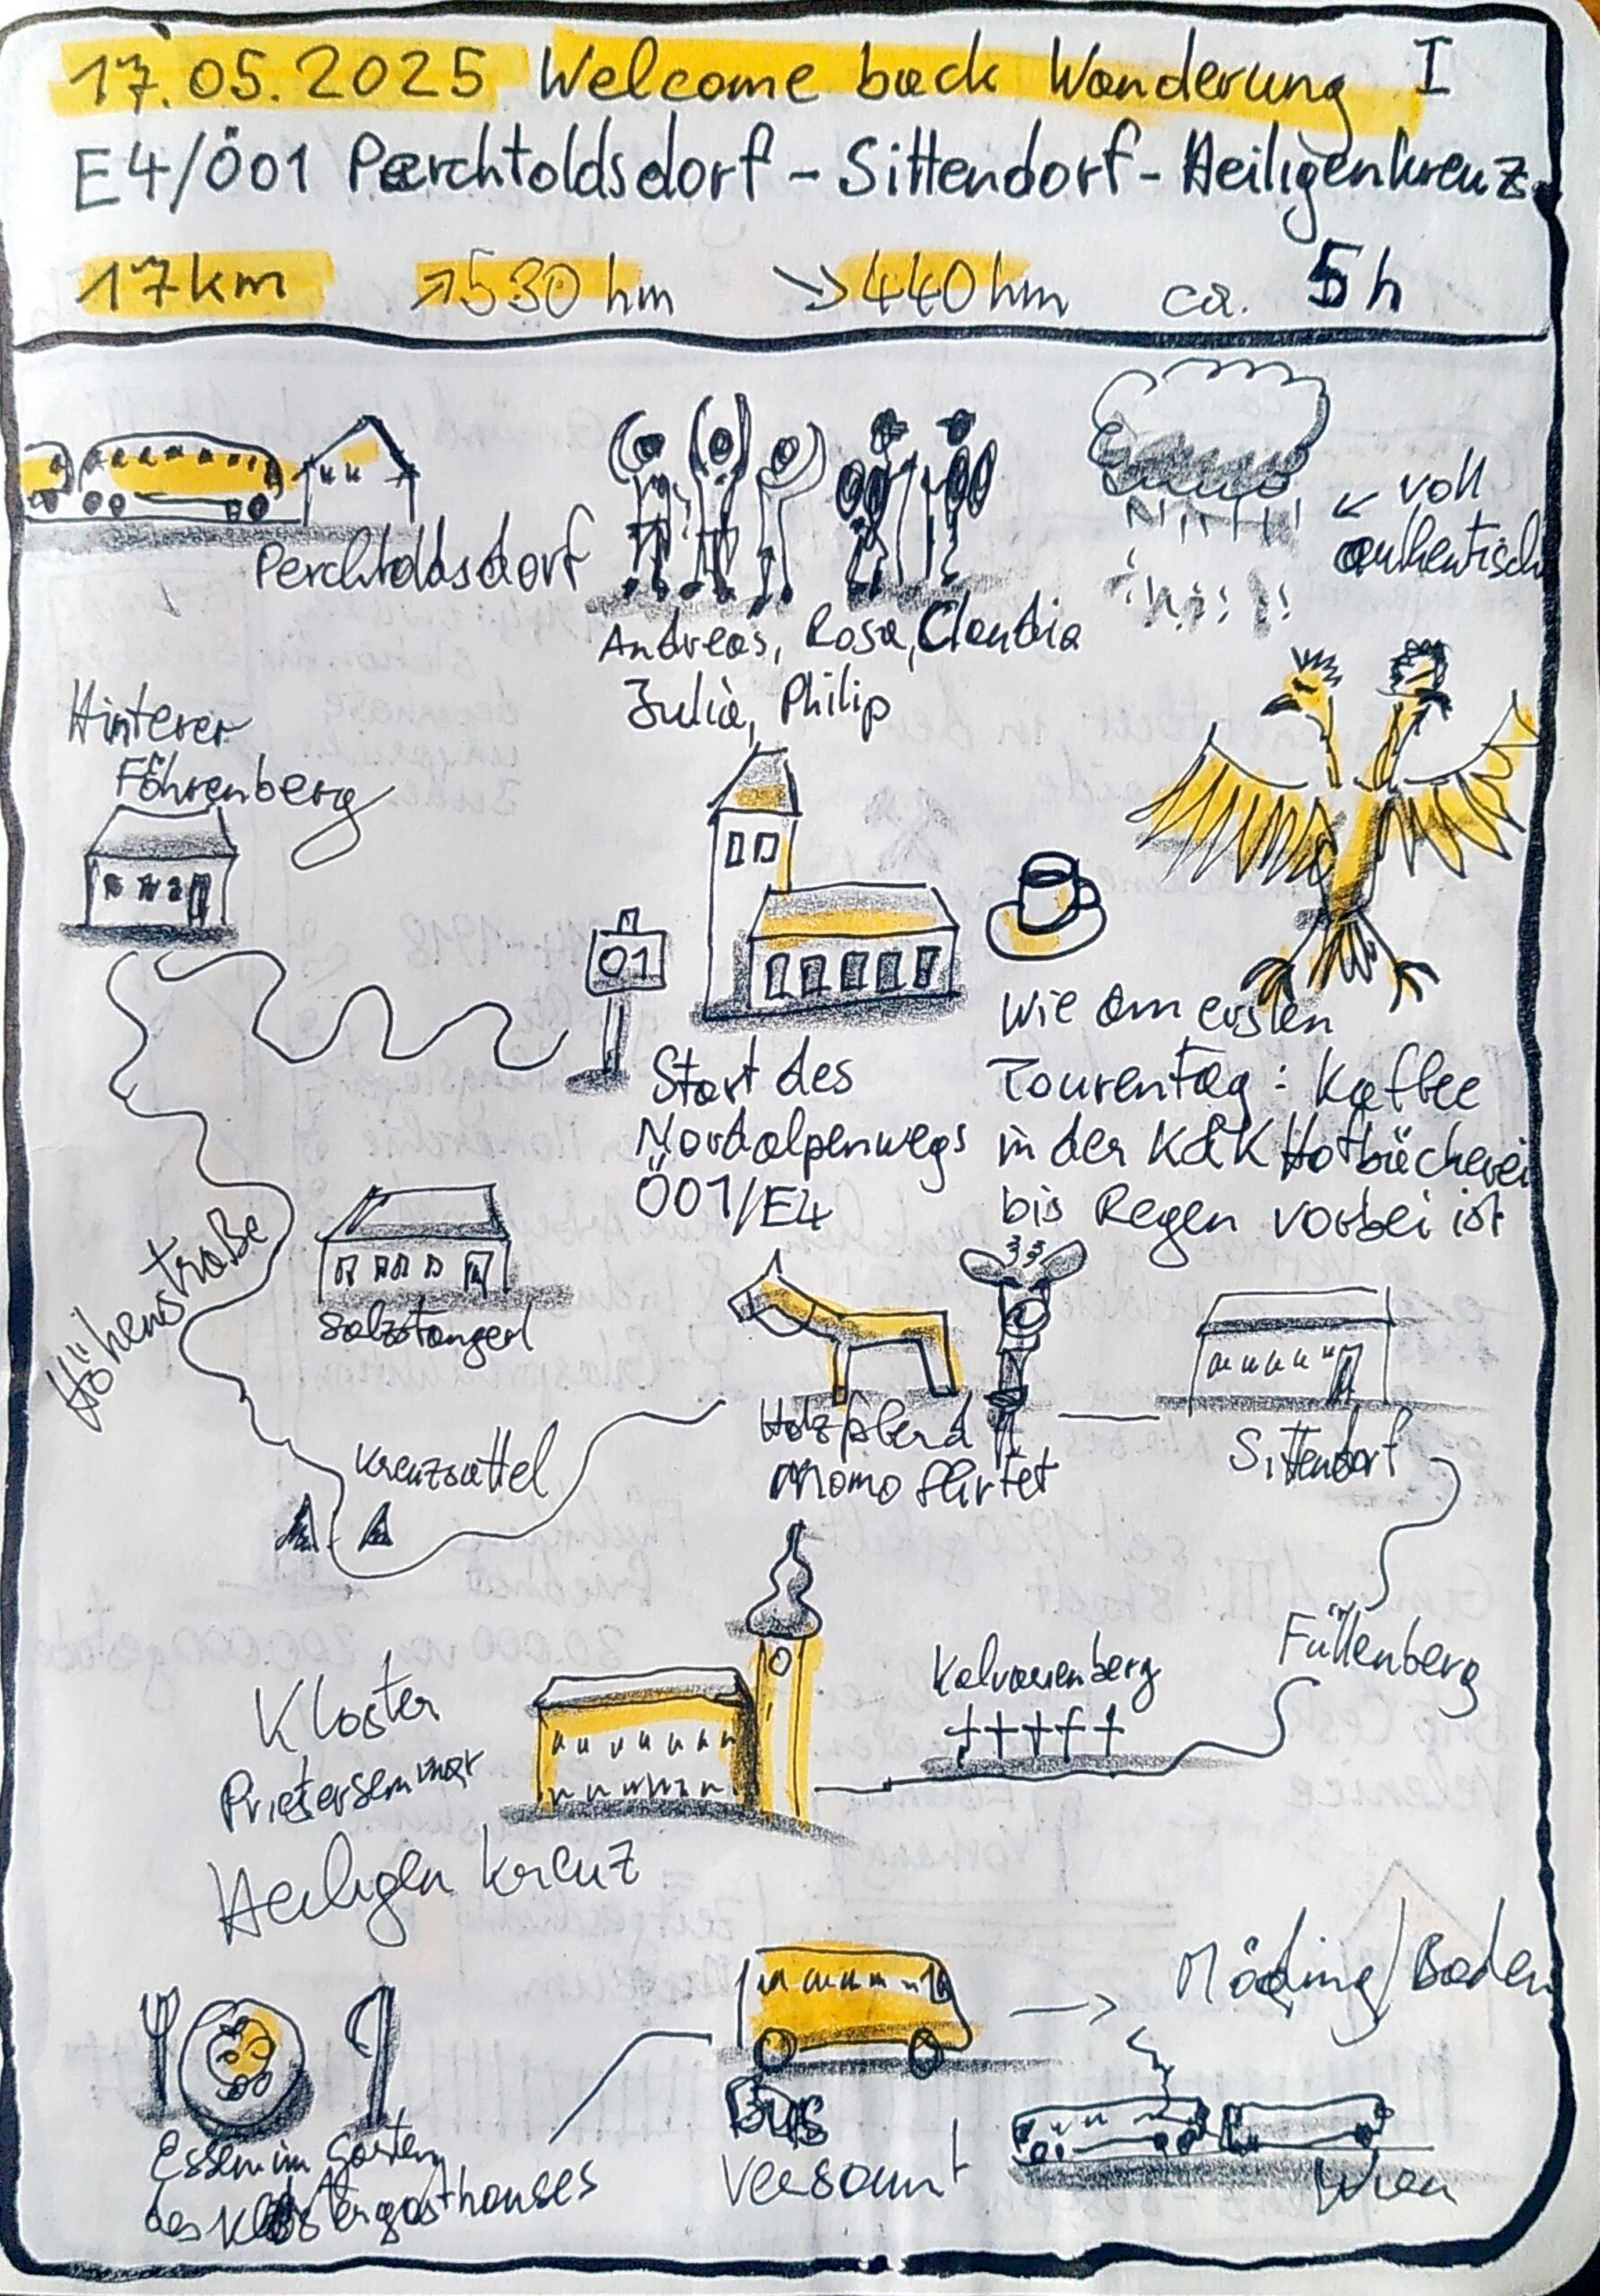 17.05.2025 Welcome back Wanderung I
E4/Ö01 Perchtoldsdorf - Sittendorf - Heiligenkreuz
17km ↗530hm ↘440hm ca. 5h
Perchtoldsdorf
Andreas, Rosa, Claudia
Julia, Philip
← voll
authentisch
Hinterer
Föhrenberg
01
Start des
Nordalpenwegs
Ö01/E4
Wie am ersten
Tourentag: Kaffee
in der K&K Hofbäckerei
bis Regen vorbei ist
Höhenstraße
Salzstangerl
Kreuzsattel
Holzpferd
Momo flirtet
Sittendorf
Füllenberg
Kalvarienberg
Kloster
Priesterseminar
Heiligenkreuz
Essen im Garten
des Klostergasthauses
Bus
versäumt
→ Mödling/Baden
Wien